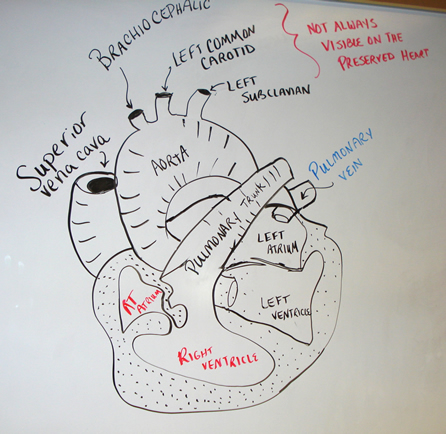 BRACHIOCEPHALIC
LEFT COMMON
CAROTID
LEFT
SUBCLAVIAN
NOT ALWAYS
VISIBLE ON THE
PRESERVED HEART
Superior
vena cava
AORTA
PULMONARY TRUNK
PULMONARY
VEIN
LEFT
ATRIUM
LEFT
VENTRICLE
RT
ATRIUM
RIGHT
VENTRICLE